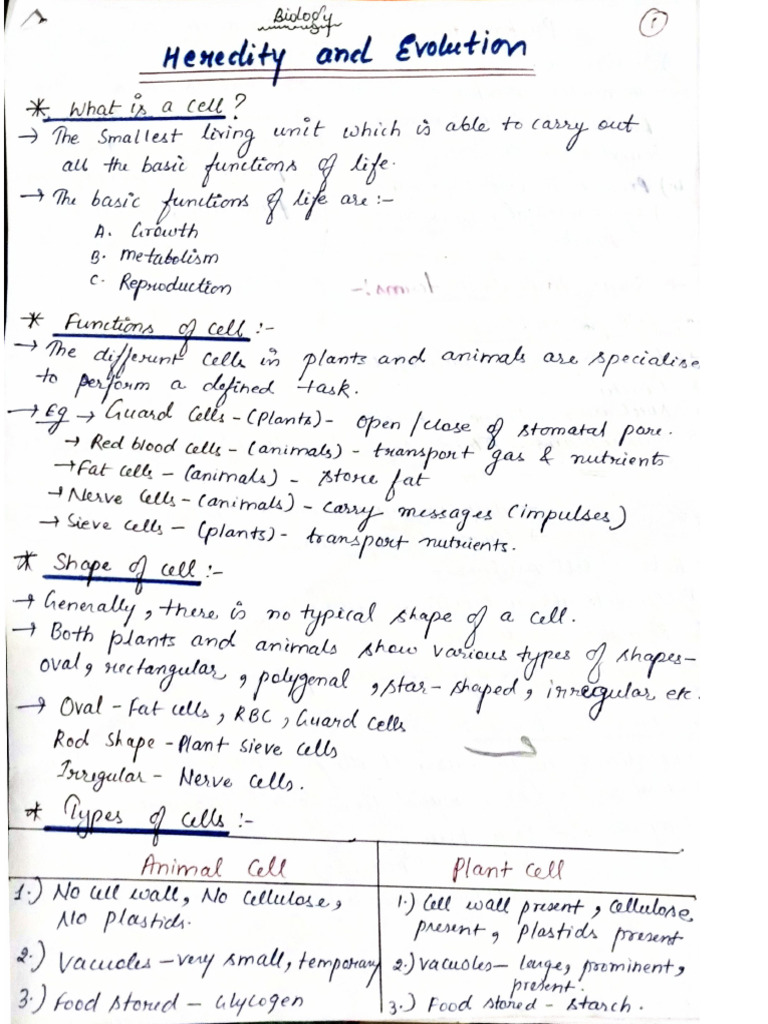 Biology
1
Heredity and Evolution
* What is a cell?
→ The smallest living unit which is able to carry out
all the basic functions of life.
→ The basic functions of life are :-
A. Growth
B. Metabolism
C. Reproduction
* Functions of cell :-
→ The different cells in plants and animals are specialise
to perform a defined task.
→ Eg → Guard Cells - (Plants) - open / close of stomatal pore.
→ Red blood cells - (animals) - transport gas & nutrients
→ Fat cells - (animals) - store fat
→ Nerve cells - (animals) - carry messages (impulses)
→ Sieve cells - (plants) - transport nutrients.
* Shape of cell :-
→ Generally, there is no typical shape of a cell.
→ Both plants and animals show various types of shapes -
oval, rectangular, polygenal, star-shaped, irregular etc.
→ Oval - Fat cells, RBC, Guard cells
Rod shape - Plant sieve cells
Irregular - Nerve cells.
* Types of cells :-
Animal Cell
Plant cell
1.) No cell wall, No cellulose,
No plastids.
1.) Cell wall present, cellulose
present, plastids present
2.) Vacuoles - very small, temporary
2.) vacuoles - large, prominent,
present.
3.) Food stored - Glycogen
3.) Food stored - starch.